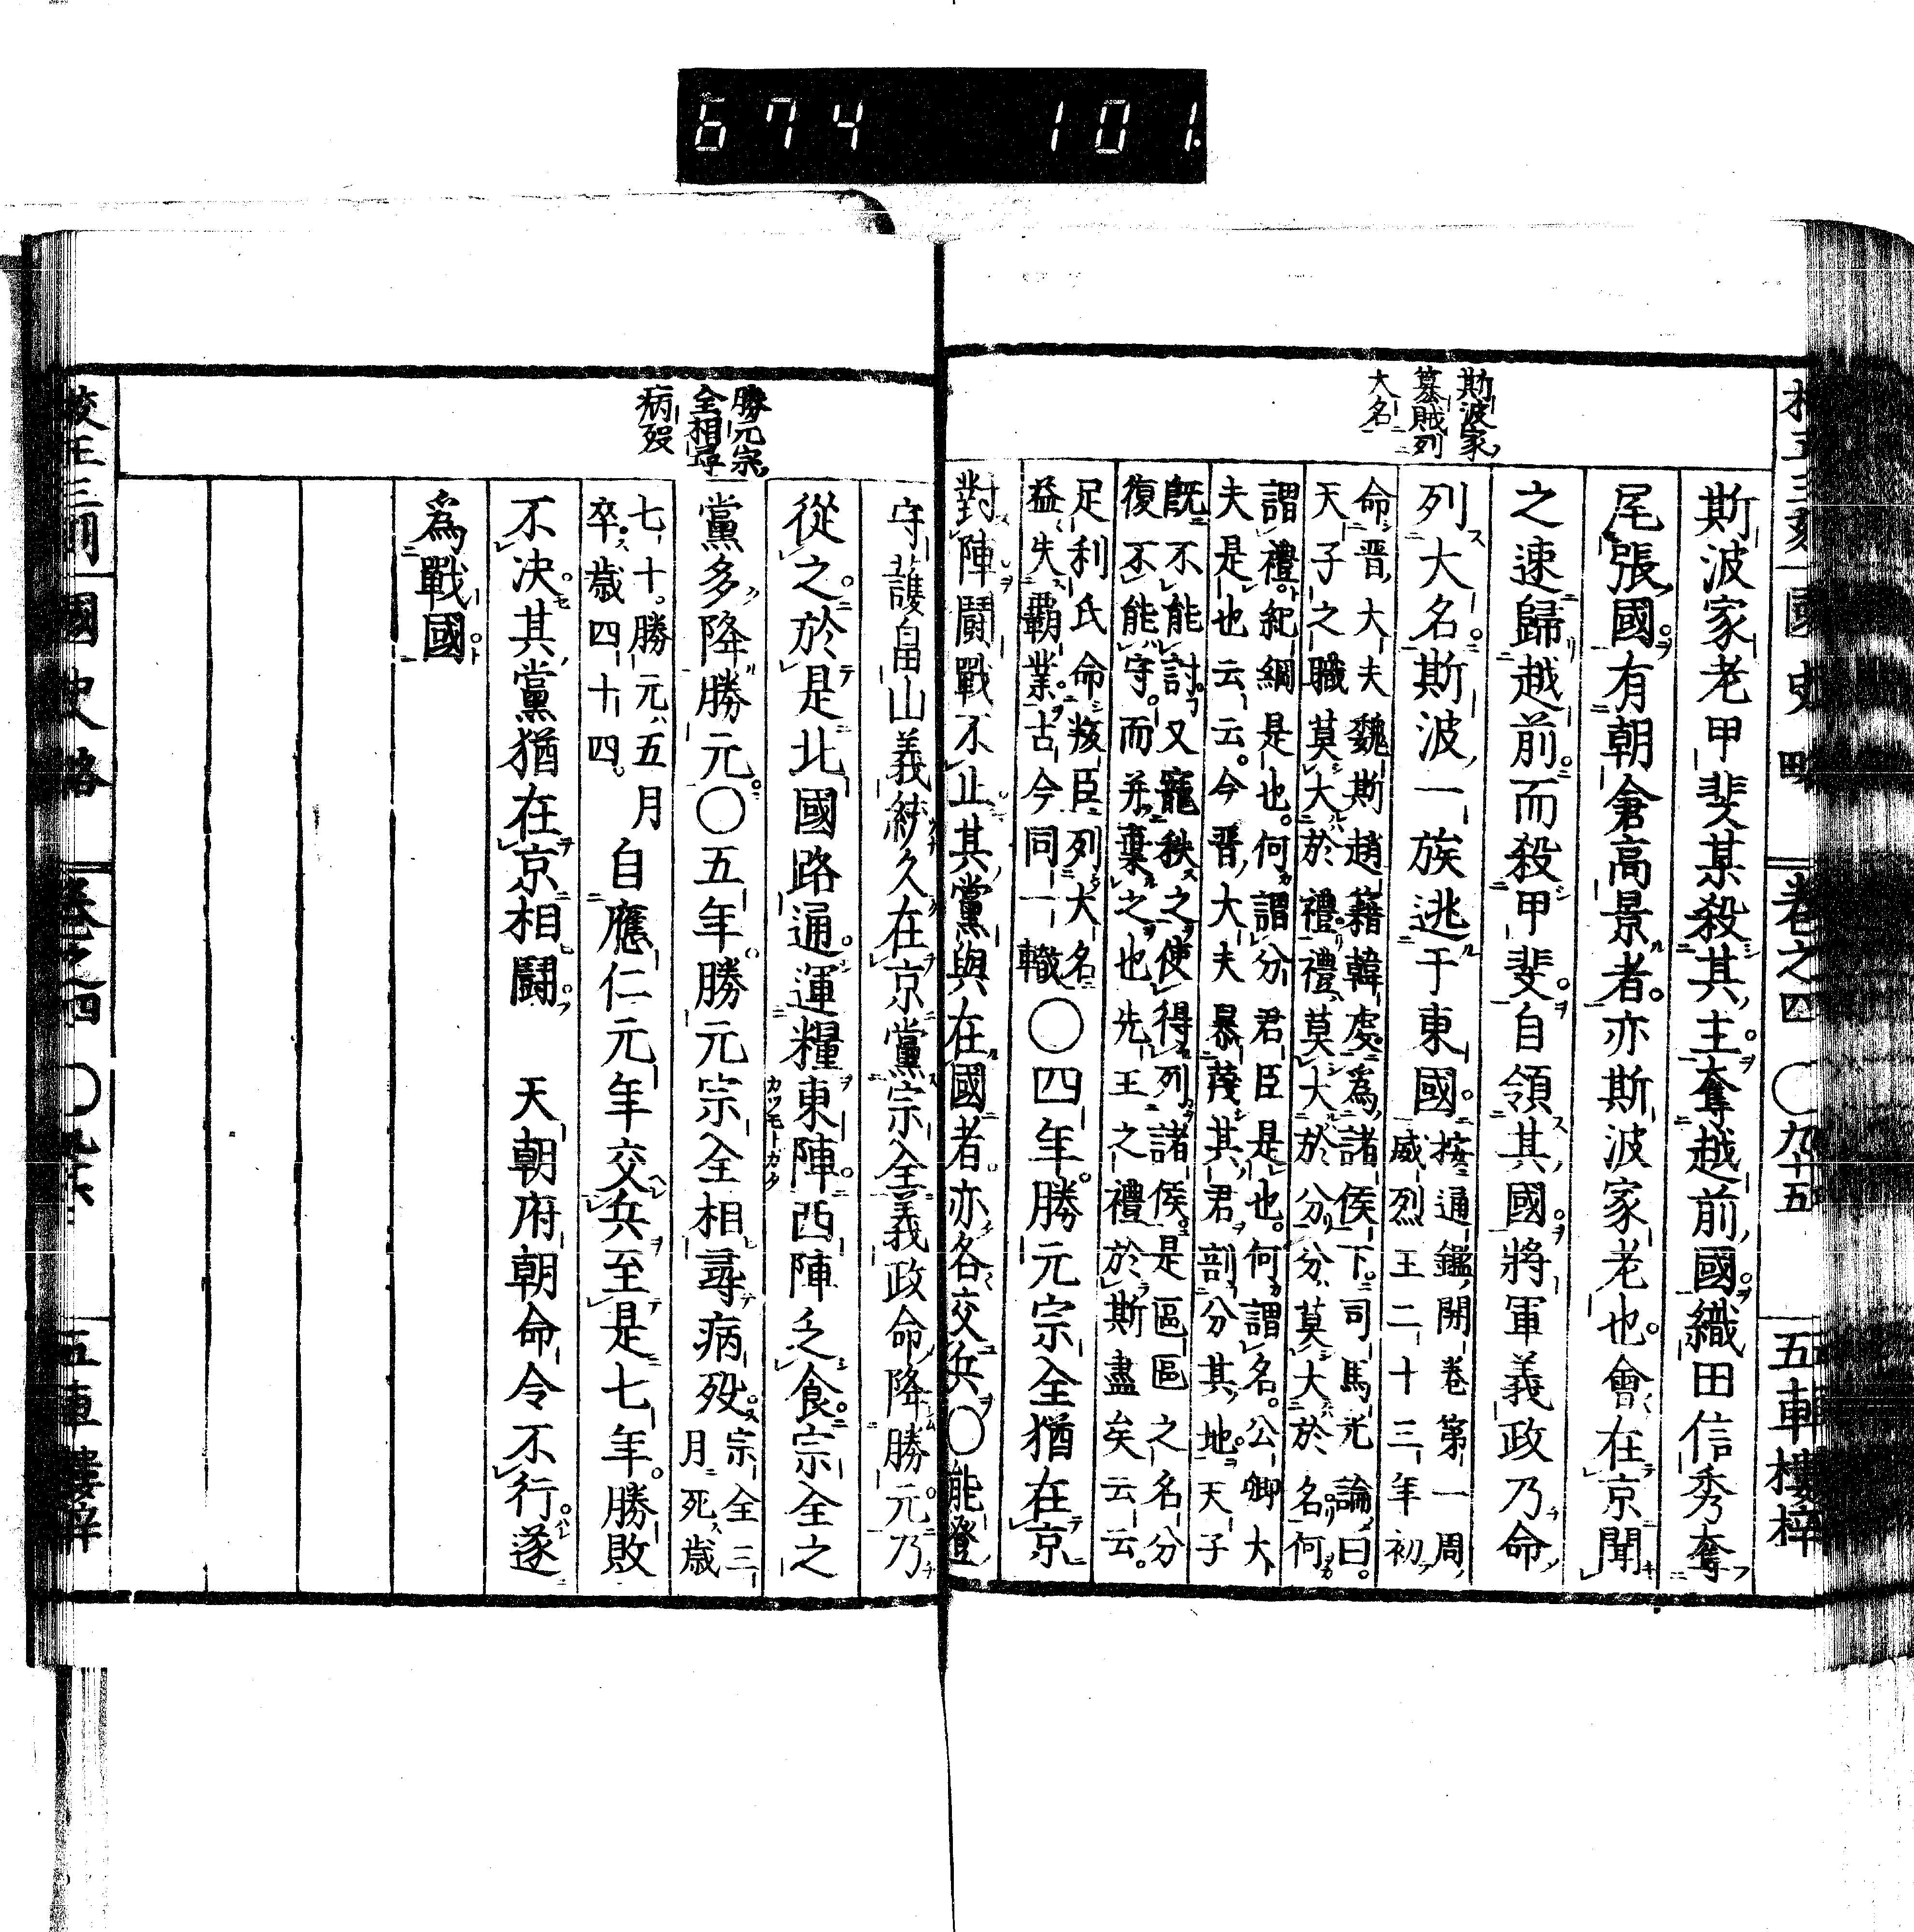 674 101.
校正三刻 國史略 卷之四 〇九十五 五車樓梓
斯波家
篡賊列
大名
斯波家老甲斐某殺其主奪越前國織田信秀奪
尾張國有朝倉高景者亦斯波家老也會在京聞
之速歸越前而殺甲斐自領其國將軍義政乃命
列大名斯波一族逃于東國
按通鑑開卷第一周
威烈王二十三年初
命晋大夫魏斯趙籍韓虔爲諸侯下司馬光論曰
天子之職莫大於禮禮莫大於分分莫大於名何
謂禮紀綱是也何謂分君臣是也何謂名公卿大
夫是也云云今晋大夫暴蔑其君剖分其地天子
既不能討又寵秩之使得列諸侯是區區之名分
復不能守而并棄之也先王之禮於斯盡矣云云
足利氏命叛臣列大名
益失覇業古今同一轍
〇四年勝元宗全猶在京
對陣鬪戰不止其黨與在國者亦各交兵〇能登
勝元宗
全相尋
病歿
守護畠山義統久在京黨宗全義政命降勝元乃
從之於是北國路通運糧東陣西陣乏食宗全之
黨多降勝元〇五年勝元宗全相尋病歿
宗全三
月死歳
七十勝元五月
卒歳四十四
自應仁元年交兵至是七年勝敗
不决其黨猶在京相鬪 天朝府朝命令不行遂
爲戰國
國史略